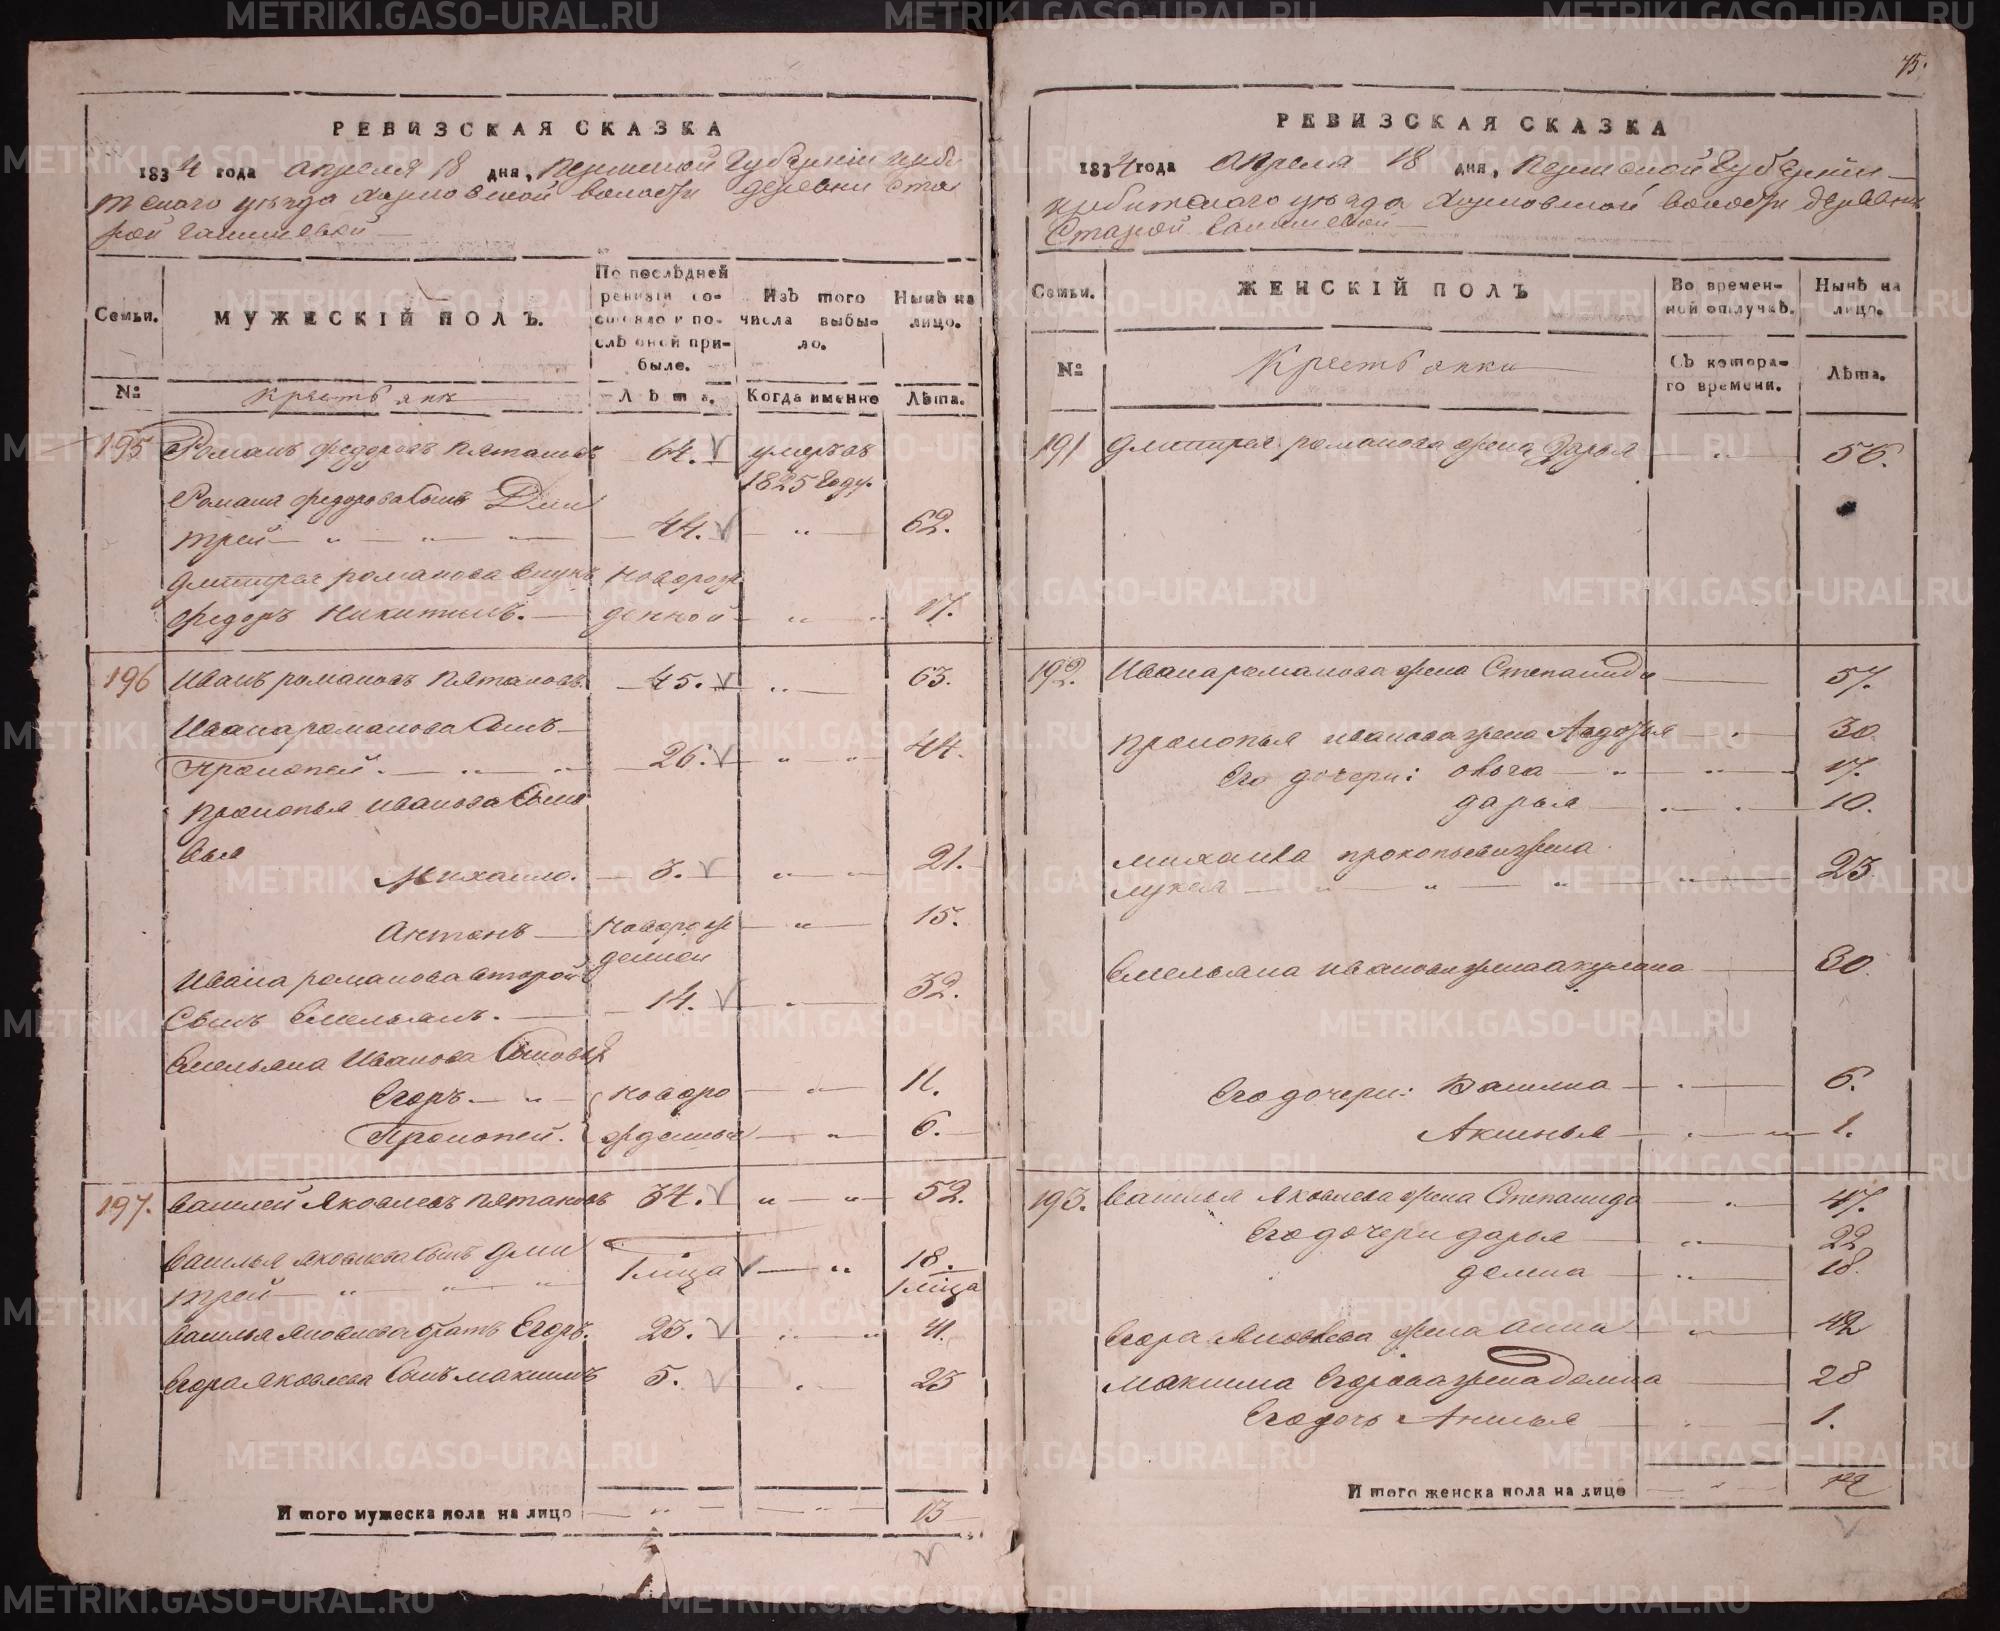 РЕВИЗСКАЯ СКАЗКА
1834 года апреля 18 дня, Пермской Губернии Ирби
тскаго уезда волости деревни Ста
рой
Семьи.
МУЖЕСКІЙ ПОЛЪ.
По послѣдней ревизіи состояло и послѣ оной прибыло.
Изъ того числа выбыло.
Нынѣ на лицо.
№
Крестьяне
Лѣта.
Когда именно
Лѣта.
195 Романъ Федоровъ Пятановъ 64. умеръ въ 1825 году.
Романа Федорова сынъ Дми
трей 44. 62.
Дмитрея Романова внукъ новорож
Федоръ Никитинъ. денной 17.
196 Иванъ Романовъ Пятановъ. 45. 63.
Ивана Романова сынъ
Прокопей. 26. 44.
Прокопья Иванова сыно
вья
Михаило. 3. 21.
Антонъ новорож 15.
денной
Ивана Романова второй
сынъ Емельянъ. 14. 32.
Емельяна Иванова сыновья
Егоръ. новоро 11.
Прокопей. жденные 6.
197. Василей Яковлевъ Пятановъ 34. 52.
Василья Яковлева сынъ Дми 18.
трей
Василья Яковлева братъ Егоръ. 23. 41.
Егора Яковлева сынъ Максимъ 5. 23
И того мужеска пола на лицо 13
75.
РЕВИЗСКАЯ СКАЗКА
1834 года апреля 18 дня, Пермской Губернии
Ирбитскаго уезда волости деревни
Старой
Семьи.
ЖЕНСКІЙ ПОЛЪ
Во временной отлучкѣ.
Нынѣ на лицо.
№
Крестьянки
Съ котораго времени.
Лѣта.
191 Дмитрея Романова жена Дарья 56.
192. Ивана Романова жена Степанида 57.
Прокопья Иванова жена Авдотья 30
Его дочери: 17.
Дарья 10.
Михаила Прокопьева жена
Лукея 23
Емельяна Иванова жена Акулина 30.
Его дочери: 6.
Аксинья 1.
193. Василья Яковлева жена Степанида 47.
Его дочери Дарья 22
Домна 18.
Егора Яковлева жена Анна 42
Максима Егорова жена Домна 28
Его дочь 1.
И того женска пола на лице
METRIKI.GASO-URAL.RU